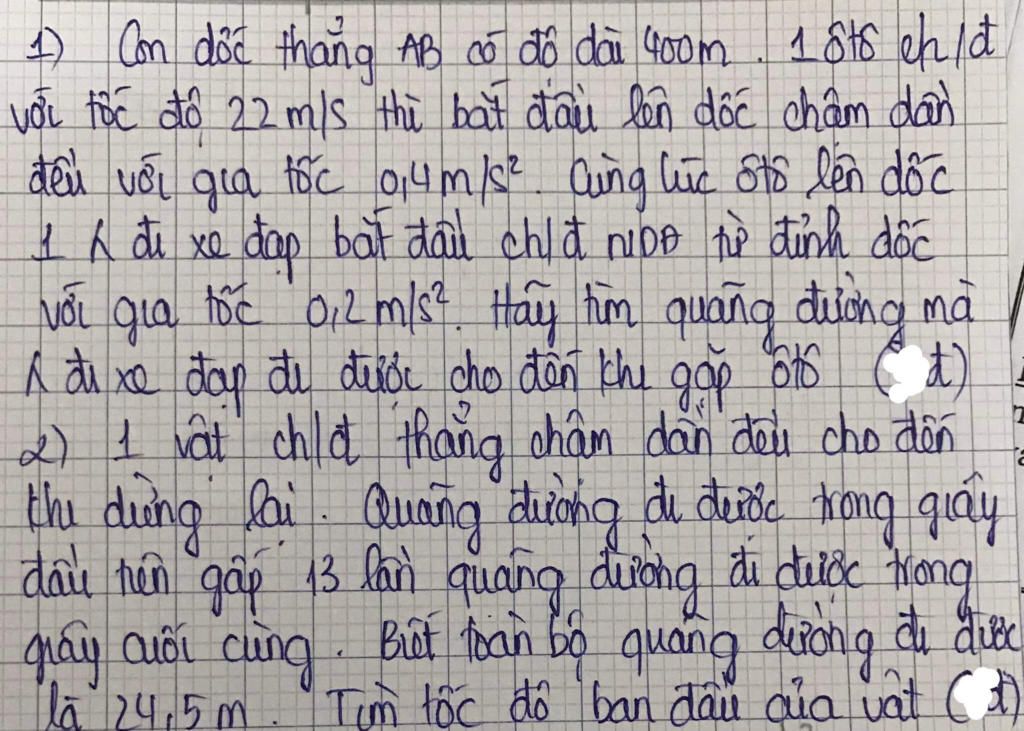 1) Con dốc thẳng AB có độ dài 400m. 1 ôtô ch/đ
với tốc độ 22 m/s thì bắt đầu lên dốc chậm dần
đều với gia tốc 0,4 m/s². Cùng lúc ôtô lên dốc
1 λ đi xe đạp bắt đầu ch/đ NDĐ từ đỉnh dốc
với gia tốc 0,2 m/s². Hãy tìm quãng đường mà
λ đi xe đạp đi được cho đến khi gặp ôtô ( đ)
2) 1 vật ch/đ thẳng chậm dần đều cho đến
khi dừng lại. Quãng đường đi được trong giây
đầu tiên gấp 13 lần quãng đường đi được trong
giây cuối cùng. Biết toàn bộ quãng đường đi được
là 24,5 m. Tìm tốc độ ban đầu của vật ( đ)